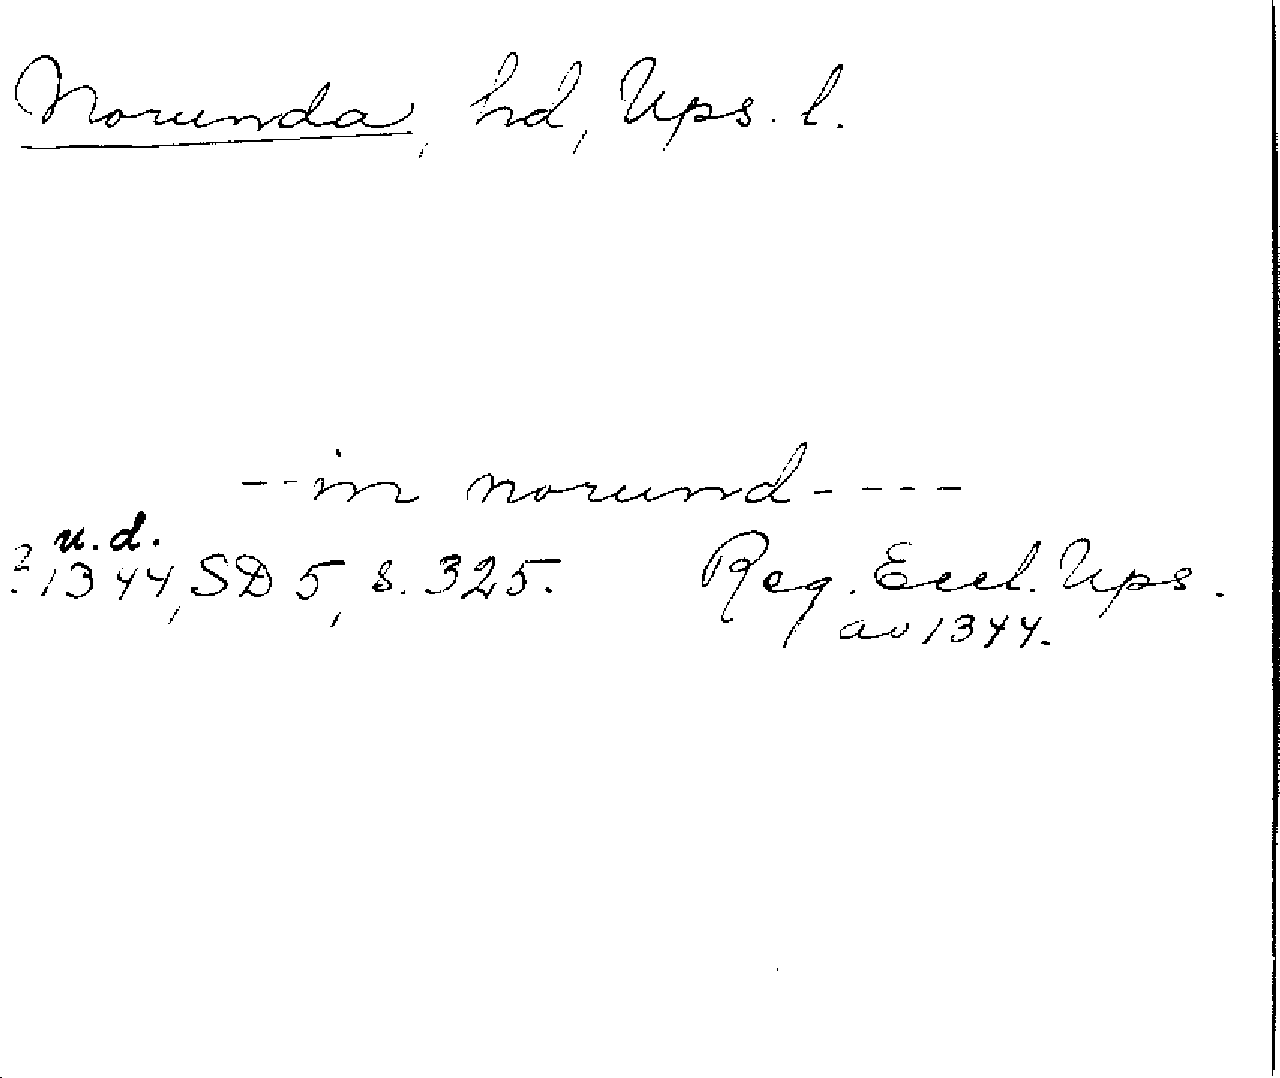 Norunda, hd, Ups. l.
--in norund----
u. d.
?1344, SD 5, s. 325. Reg. Eccl. Ups.
av 1344.